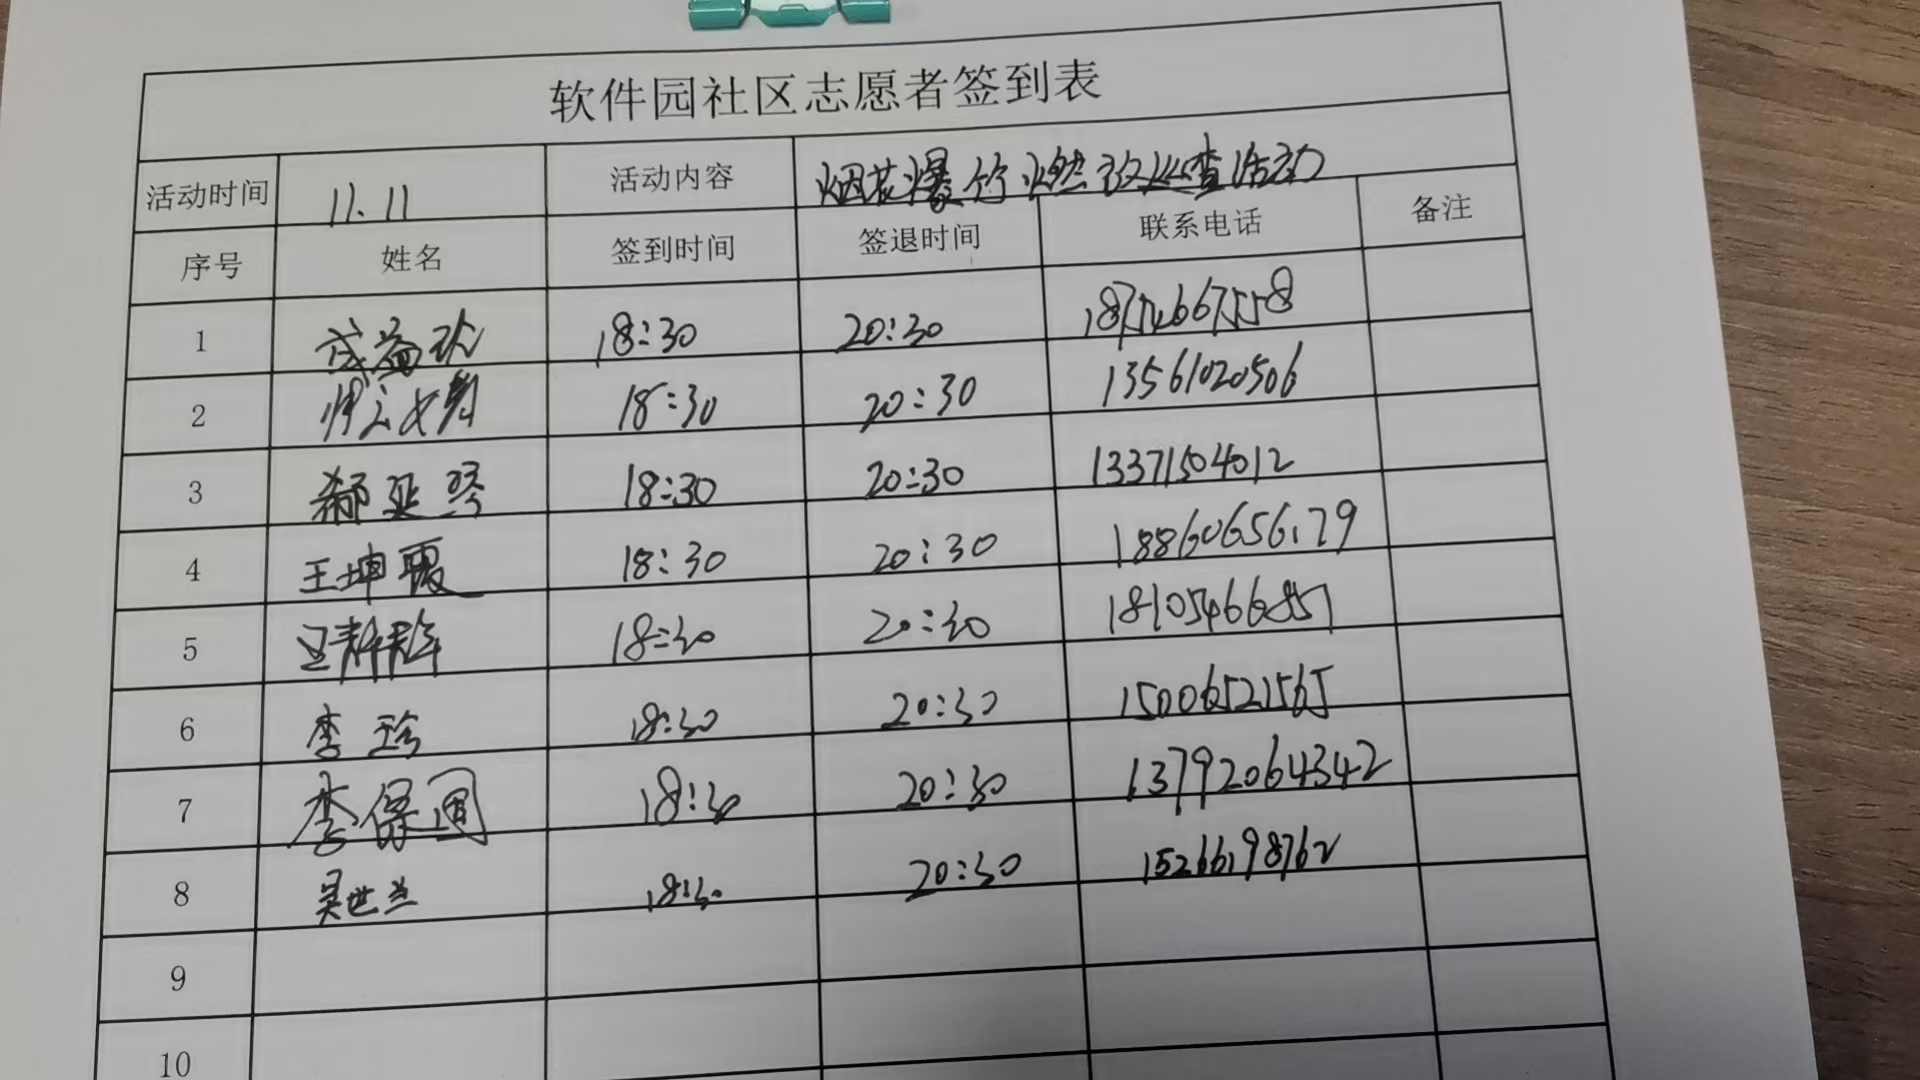 软件园社区志愿者签到表
活动时间 11.11 活动内容 烟花爆竹燃放巡查活动
序号 姓名 签到时间 签退时间 联系电话 备注
1 18:30 20:30 18754667558
2 18:30 20:30 13561020506
3 郝延琴 18:30 20:30 13371504012
4 王坤霞 18:30 20:30 18860656179
5 18:30 20:30 18105466857
6 李珍 18:30 20:30 15006521565
7 李保国 18:30 20:30 13792064342
8 吴世兰 18:30 20:30 15266198762
9
10